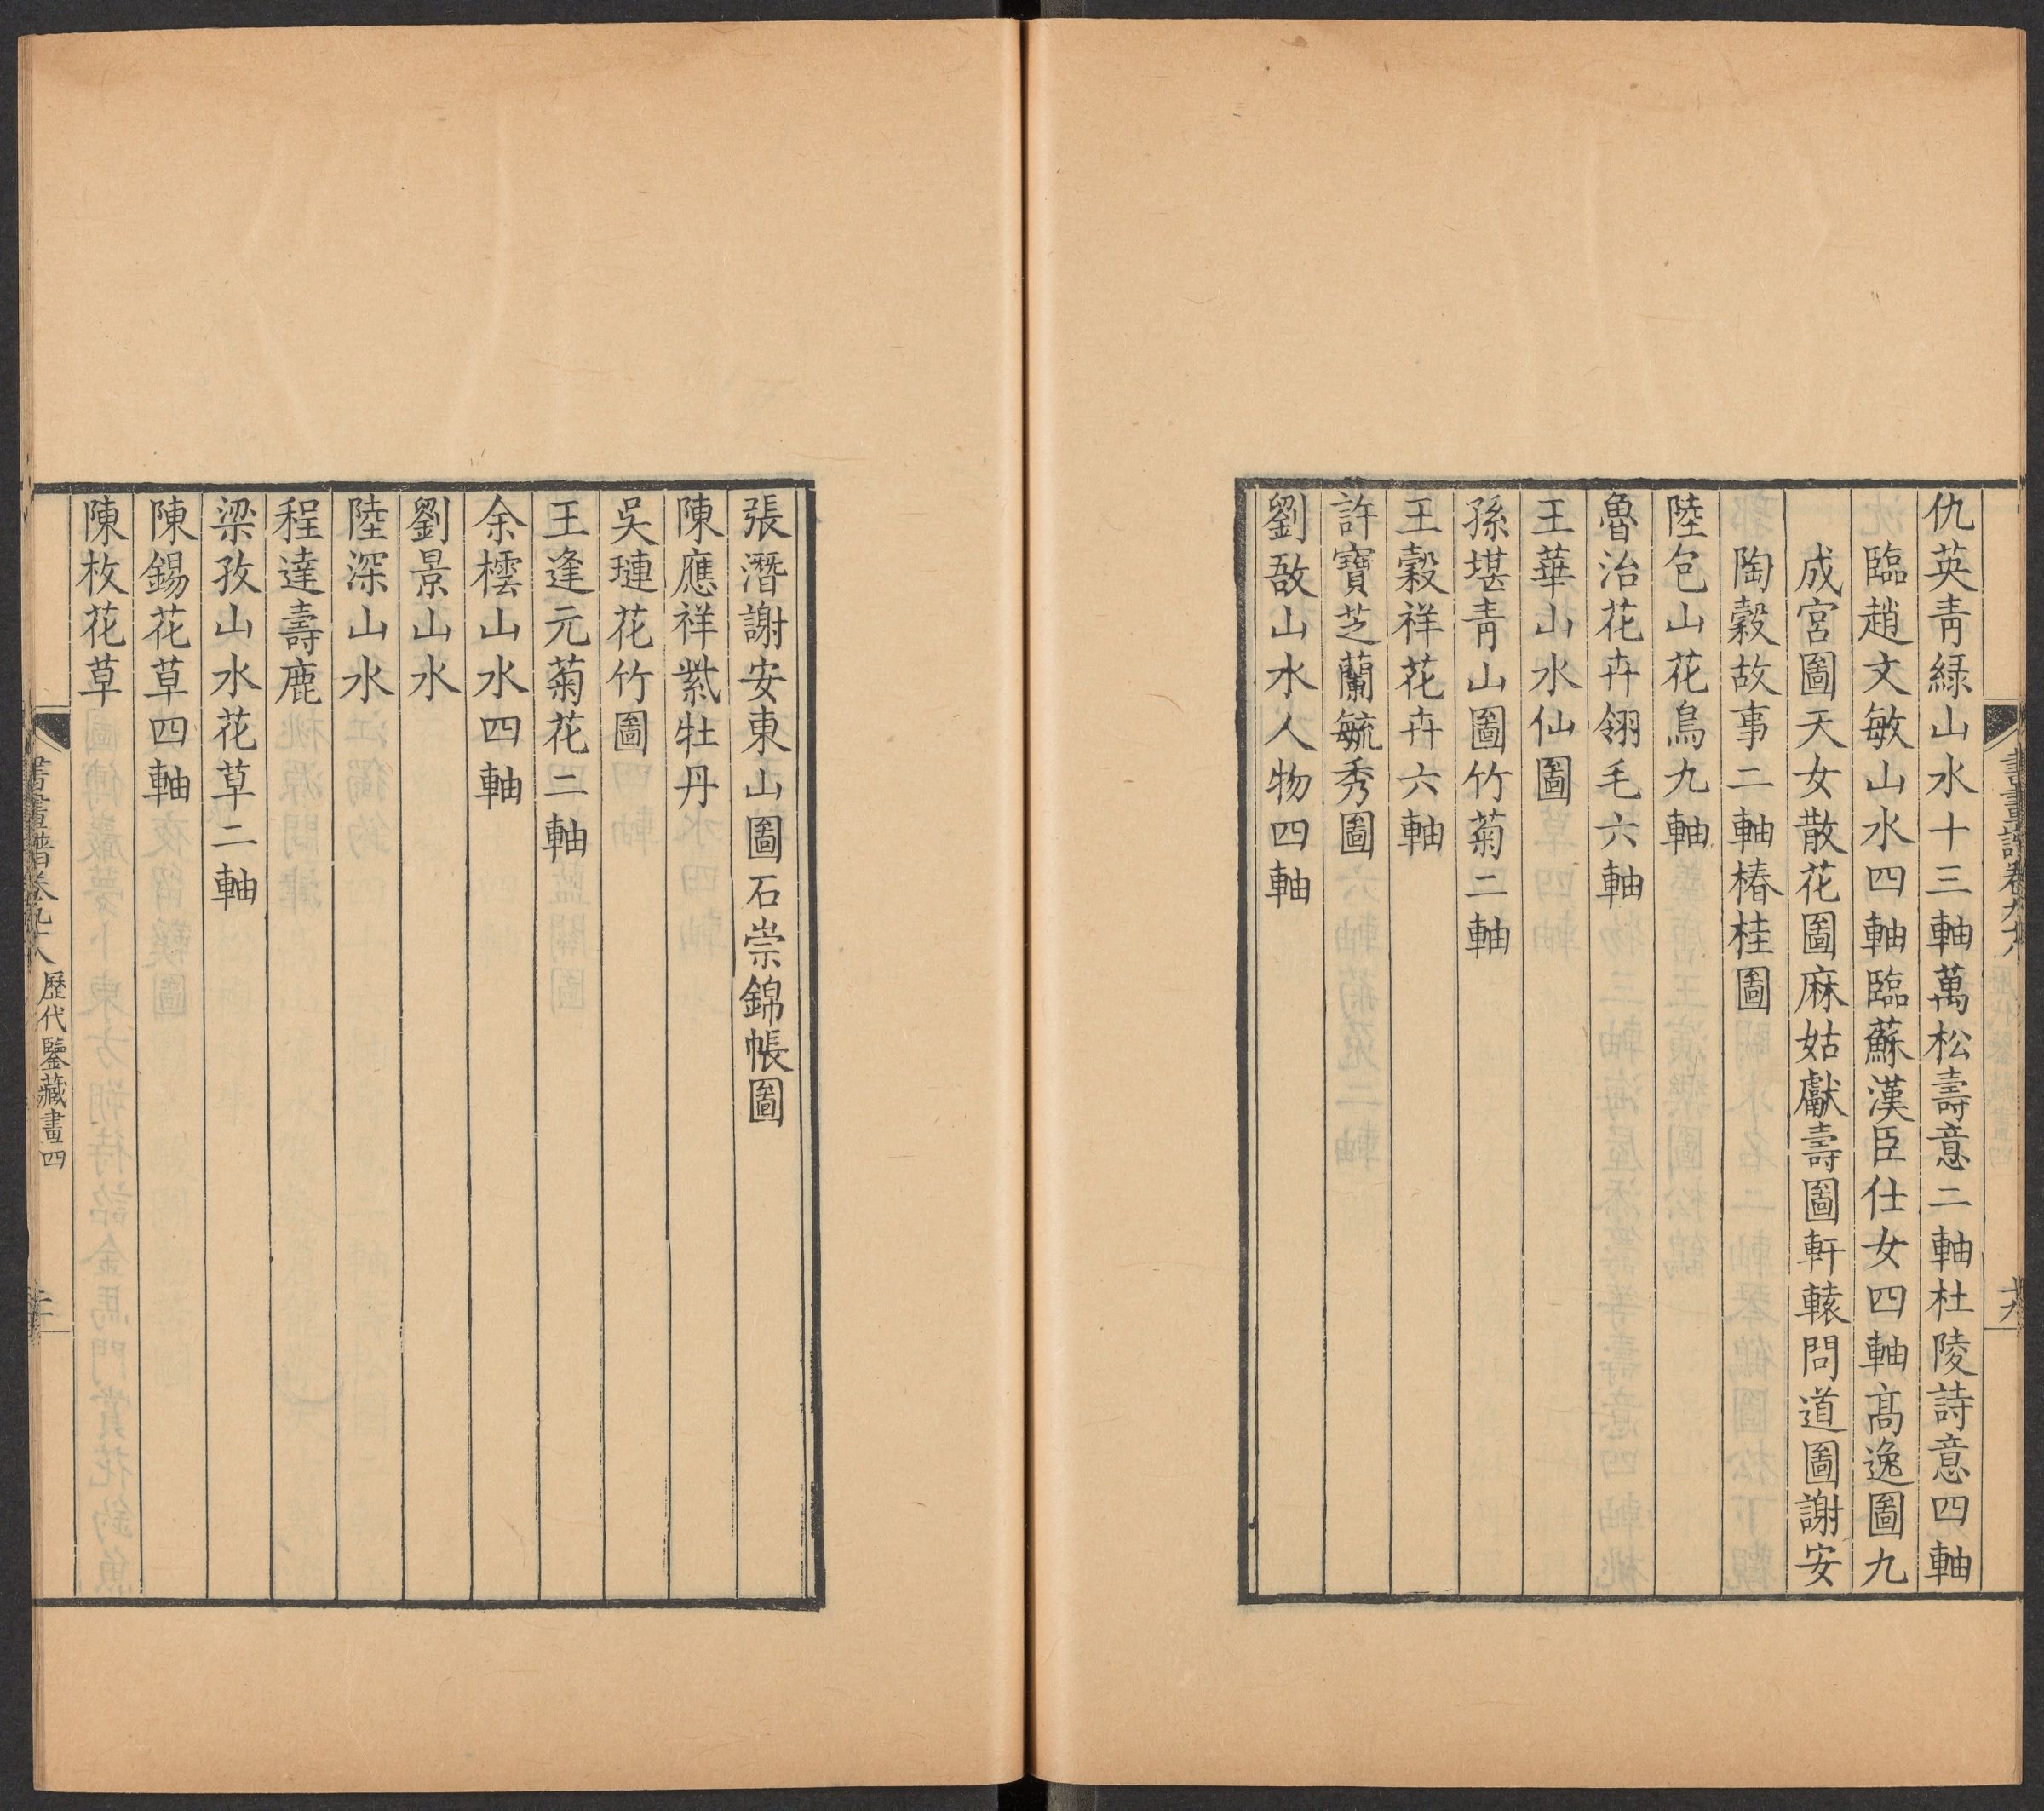 仇英青綠山水十三軸萬松壽意二軸杜陵詩意四軸
臨趙文敏山水四軸臨蘇漢臣仕女四軸高逸圖九
成宮圖天女散花圖麻姑獻壽圖軒轅問道圖謝安
陶穀故事二軸椿桂圖
陸包山花鳥九軸
魯治花卉翎毛六軸
王華山水仙圖
孫堪青山圖竹菊二軸
王穀祥花卉六軸
許寶芝蘭毓秀圖
劉敔山水人物四軸
張潛謝安東山圖石崇錦帳圖
陳應祥紫牡丹
吳璉花竹圖
王逢元菊花二軸
余橒山水四軸
劉景山水
陸深山水
程達壽鹿
梁孜山水花草二軸
陳錫花草四軸
陳枚花草
書畫譜卷九十八 歷代鑒藏畫四